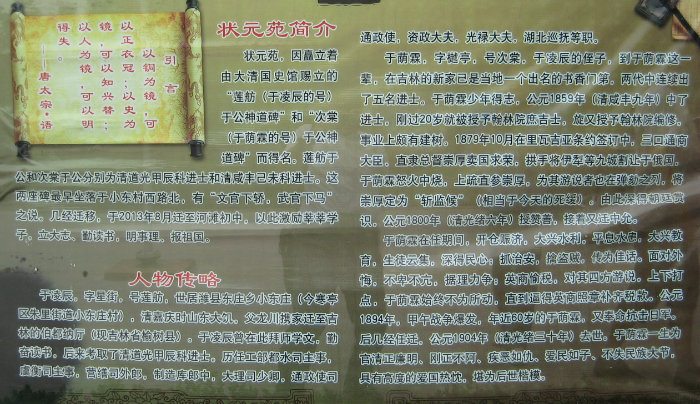 引言
以铜为镜,可
以正衣冠;以史为
镜,可以知兴替;
以人为镜,可以明
得失。
——唐太宗·语
状元苑简介
状元苑,因矗立着
由大清国史馆赐立的
“莲舫(于凌辰的号)
于公神道碑”和“次棠
(于荫霖的号)于公神
道碑”而得名。莲舫于
公和次棠于公分别为清道光甲辰科进士和清咸丰己未科进士。这
两座碑最早坐落于小东村西路北,有“文官下轿,武官下马”
之说。几经迁移,于2013年8月迁至河滩初中,以此激励莘莘学
子,立大志、勤读书,明事理、报祖国。
人物传略
于凌辰,字星街,号莲舫,世居潍县东庄乡小东庄(今寒亭
区朱里街道小东庄村)。清嘉庆时山东大饥,父龙川携家迁至吉
林的伯都纳厅(现吉林省榆树县)。于凌辰曾在此拜师学文,勤
奋读书,后来考取了清道光甲辰科进士。历任工部都水司主事,
虞衡司主事,营缮司外郎,制造库郎中,大理司少卿,通政使司
通政使、资政大夫,光禄大夫,湖北巡抚等职。
于荫霖,字樾亭,号次棠,于凌辰的侄子,到于荫霖这一
辈,在吉林的新家已是当地一个出名的书香门第。两代中连续出
了五名进士。于荫霖少年得志,公元1859年(清咸丰九年)中了
进士。刚过20岁就被授予翰林院庶吉士,旋又授予翰林院编修。
事业上颇有建树。1879年10月在里瓦吉亚条约签订中,三口通商
大臣,直隶总督崇厚卖国求荣,拱手将伊犁等九城割让于俄国,
于荫霖怒火中烧,上疏直参崇厚,为其游说者也在弹劾之列,将
崇厚定为“斩监候”(相当于今天的死缓)。由此深得朝廷赏
识,公元1800年(清光绪六年)授赞善,接着又迁中允。
于荫霖在任期间,开仓赈济,大兴水利,平息水患,大兴教
育,生徒云集,深得民心;抓治安,擒盗贼,传为佳话。面对外
侮,不卑不亢,据理力争;英商偷税,对其四方游说,上下打
点,于荫霖始终不为所动,直到逼得英商照章补齐税款。公元
1894年,甲午战争爆发,年近60岁的于荫霖,又奉命抗击日军,
后几经迁任。公元1904年(清光绪三十年)去世。于荫霖一生为
官清正廉明、刚正不阿、疾恶如仇、爱民如子、不失民族大节,
具有高度的爱国热忱,堪为后世楷模。